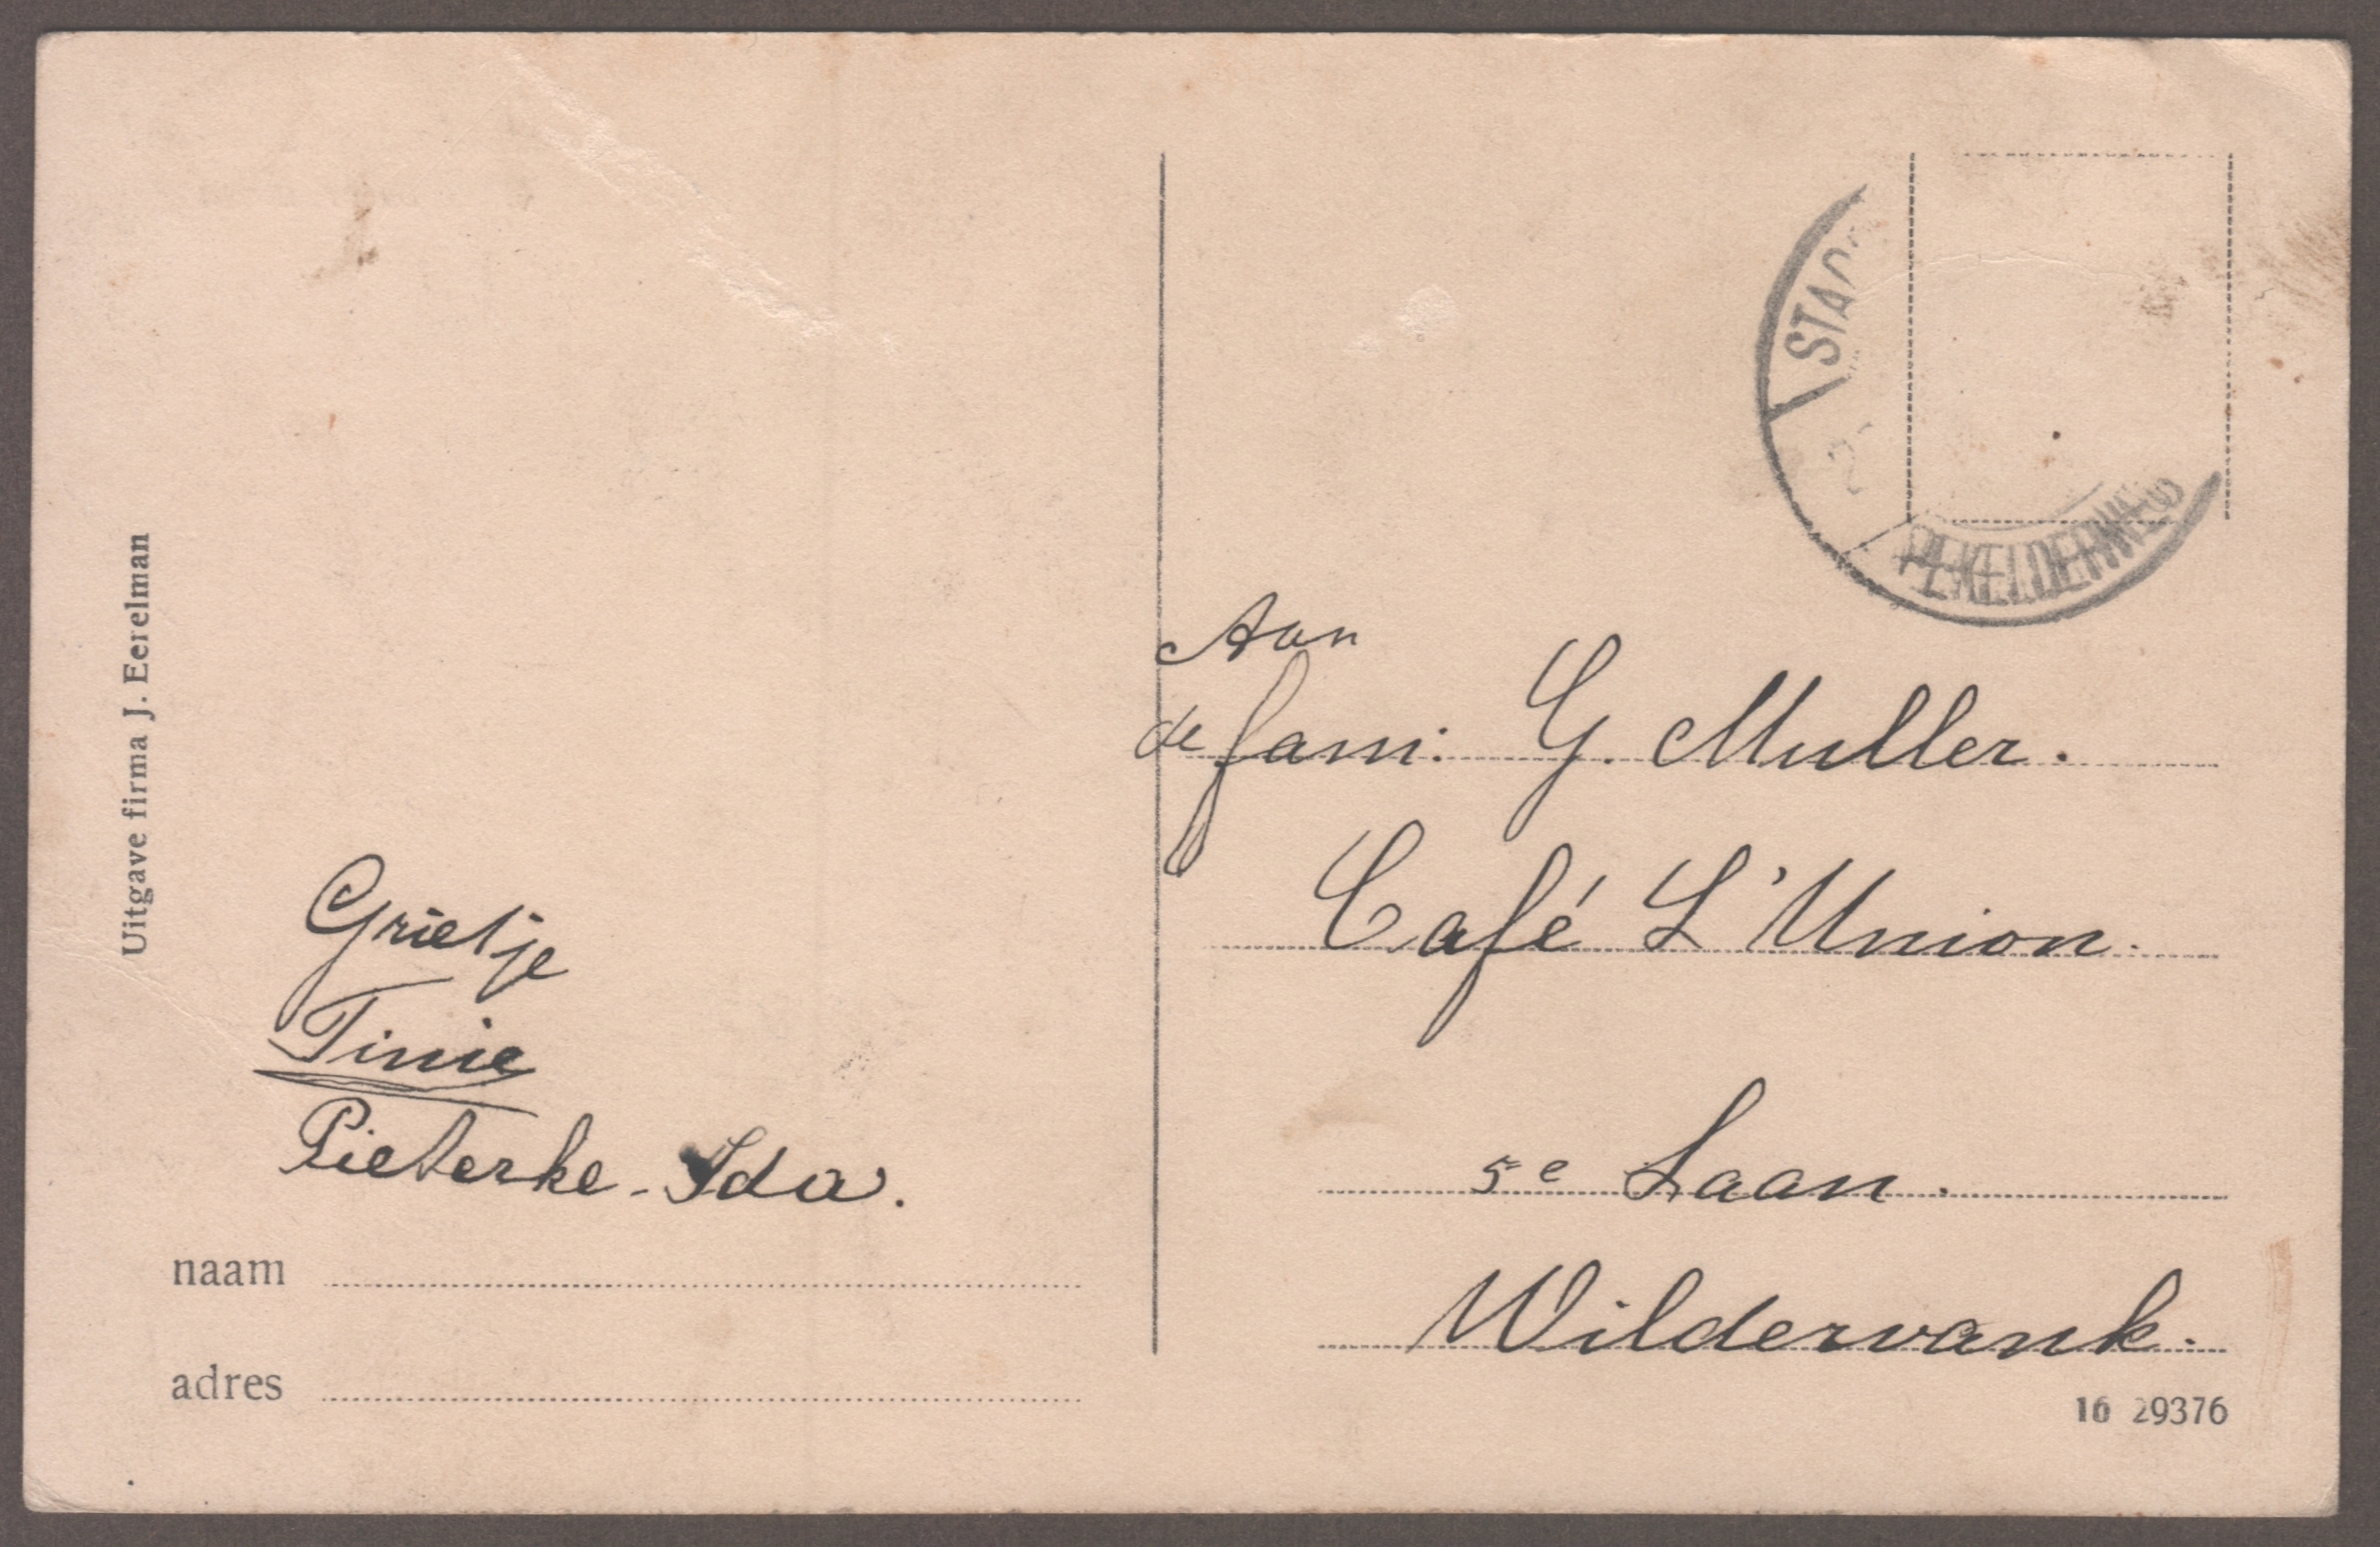 Uitgave firma J. Eerelman
Grietje
Tinie
Pieterke - Ida.
naam
adres
Aan
de fam: G. Muller.
Café L'Union.
5e Laan.
Wildervank.
16 29376